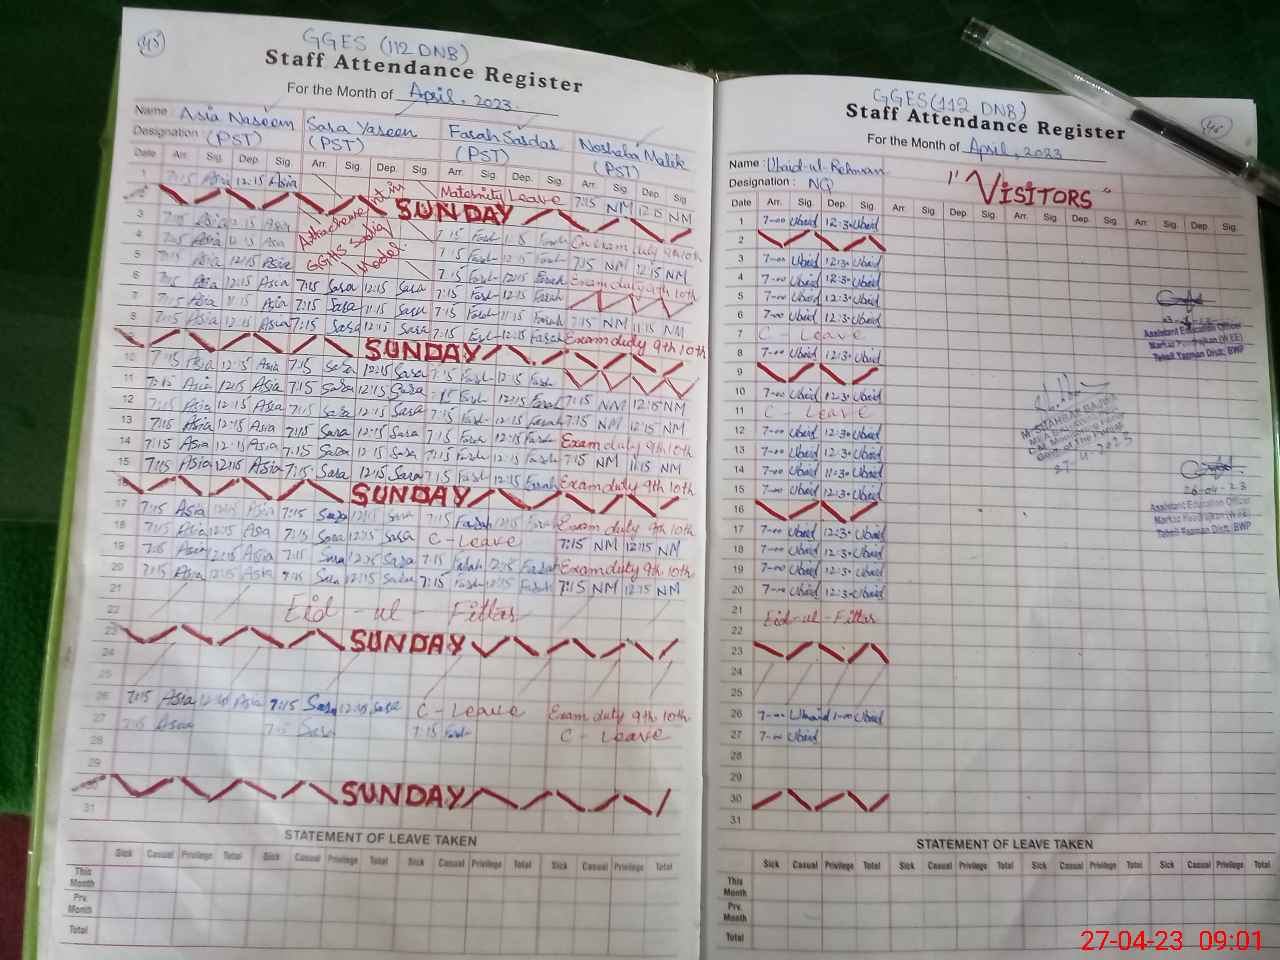 45
GGES (112 DNB)
Staff Attendance Register
For the Month of April, 2023
Name : Asia Naseem Sara Yaseen Farah Sardar Noshaba Malik
Designation : (PST) (PST) (PST) (PST)
Date Arr. Sig. Dep. Sig. Arr. Sig. Dep. Sig. Arr. Sig. Dep. Sig. Arr. Sig. Dep. Sig.
1 7:15 Asia 12:15 Asia Maternity Leave 7:15 NM 12:15 NM
SUNDAY
3 7:15 Asia 12:15 Asia 7:15 Farah Farah On exam duty 9th 10th
4 7:15 Asia 12:15 Asia 7:15 Farah 12:15 Farah 7:15 NM 12:15 NM
5 7:15 Asia 12:15 Asia 7:15 Farah 12:15 Farah Exam duty 9th 10th
Attachement in
GGHS Sadiq
Model
6 Asia 12:15 Asia 7:15 Sara 12:15 Sara 7:15 Farah 12:15 Farah
7 7:15 Asia 11:15 Asia 7:15 Sara 11:15 Sara 7:15 Farah 11:15 Farah 7:15 NM 11:15 NM
8 7:15 Asia 12:15 Asia 7:15 Sara 12:15 Sara 7:15 12:15 Farah Exam duty 9th 10th
SUNDAY
10 7:15 Asia 12:15 Asia 7:15 Sara 12:15 Sara 7:15 Farah 12:15 Farah
11 Asia 12:15 Asia 7:15 Sara 12:15 Sara :15 Farah 12:15 Farah 7:15 NM 12:15 NM
12 7:15 Asia 12:15 Asia 7:15 Sara 12:15 Sara 7:15 Farah 12:15 Farah 7:15 NM 12:15 NM
13 7:15 Asia 12:15 Asia 7:15 Sara 12:15 Sara 7:15 Farah 12:15 Farah Exam duty 9th 10th
14 7:15 Asia Asia 7:15 Sara 12:15 Sara 7:15 Farah 12:15 Farah 7:15 NM 11:15 NM
15 7:15 Asia 12:15 Asia 7:15 Sara 12:15 Sara 7:15 Farah 12:15 Farah Exam duty 9th 10th
16 SUNDAY
17 7:15 Asia 12:15 Asia 7:15 Sara 12:15 Sara 7:15 Farah 12:15 Farah Exam duty 9th 10th
18 7:15 Asia 12:15 Asia 7:15 Sara 12:15 Sara C-Leave 7:15 NM 12:15 NM
19 7:15 Asia 12:15 Asia 7:15 Sara 12:15 Sara 7:15 Farah 12:15 Farah Exam duty 9th 10th
20 7:15 Asia 12:15 Asia 7:15 Sara 12:15 Sara 7:15 Farah 12:15 Farah 7:15 NM 12:15 NM
21
22 Eid - ul - Fittar
23 SUNDAY
24
25
26 7:15 Asia Asia 7:15 Sara Sara C-Leave Exam duty 9th 10th
27 7:15 Asia 7:15 Sara 7:15 Farah C-Leave
28
29
30 SUNDAY
31
STATEMENT OF LEAVE TAKEN
Sick Casual Privilege Total Sick Casual Privilege Total Sick Casual Privilege Total Sick Casual Privilege Total
This Month
Prv. Month
Total
GGES (112 DNB)
Staff Attendance Register
46
For the Month of April, 2023
Name : Ubaid-ul-Rehman
Designation : NQ
"VISITORS"
Date Arr. Sig. Dep. Sig. Arr. Sig. Dep. Sig. Arr. Sig. Dep. Sig. Arr. Sig. Dep. Sig.
1 7-00 Ubaid 12:30 Ubaid
2
3 7-00 Ubaid 12:30 Ubaid
4 7-00 Ubaid 12:30 Ubaid
5 7-00 Ubaid 12:30 Ubaid
6 7-00 Ubaid 12:30 Ubaid
7 C - Leave
8 7-00 Ubaid 12:30 Ubaid
9
10 7-00 Ubaid 12:30 Ubaid
11 C - Leave
12 7-00 Ubaid 12:30 Ubaid
13 7-00 Ubaid 12:30 Ubaid
14 7-00 Ubaid 11:30 Ubaid
15 7-00 Ubaid 12:30 Ubaid
16
17 7-00 Ubaid 12:30 Ubaid
18 7-00 Ubaid 12:30 Ubaid
19 7-00 Ubaid 12:30 Ubaid
20 7-00 Ubaid 12:30 Ubaid
21 Eid-ul-Fittar
22
23
24
25
26 7-00 Ubaid 1-00 Ubaid
27 7-00 Ubaid
28
29
30
31
Assistant Education Officer
Markaz (WEE)
Tehsil Yazman Distt. BWP
26-04-23
Assistant Education Officer
Markaz (WEE)
Tehsil Yazman Distt. BWP
STATEMENT OF LEAVE TAKEN
Sick Casual Privilege Total Sick Casual Privilege Total Sick Casual Privilege Total Sick Casual Privilege Total
This Month
Prv. Month
Total
27-04-23 09:01